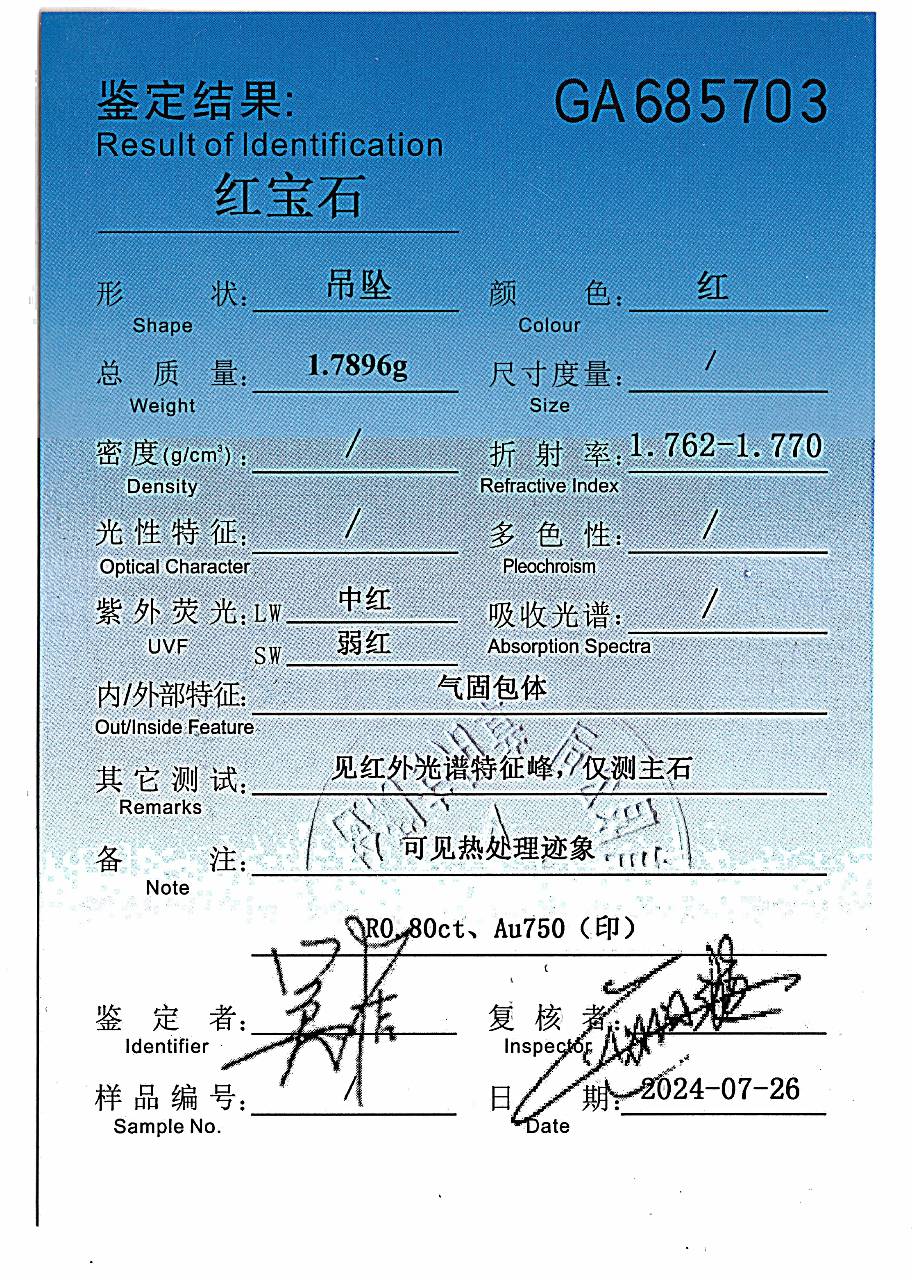 鉴定结果: GA685703
Result of Identification
红宝石
形 状: 吊坠 颜 色: 红
Shape Colour
总 质 量: 1.7896g 尺寸度量: /
Weight Size
密度(g/cm³): / 折 射 率: 1.762-1.770
Density Refractive Index
光性特征: / 多 色 性: /
Optical Character Pleochroism
紫外荧光: LW 中红 吸收光谱: /
UVF SW 弱红 Absorption Spectra
内/外部特征: 气固包体
Out/Inside Feature
其它测试: 见红外光谱特征峰，仅测主石
Remarks
备 注: 可见热处理迹象
Note
R0.80ct、Au750（印）
鉴 定 者: 复 核 者:
Identifier Inspector
样品编号: / 日 期: 2024-07-26
Sample No. Date